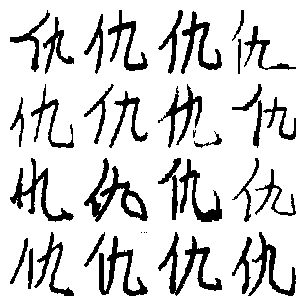 仇仇仇仇
仇仇仇仇
仇仇仇仇
仇仇仇仇